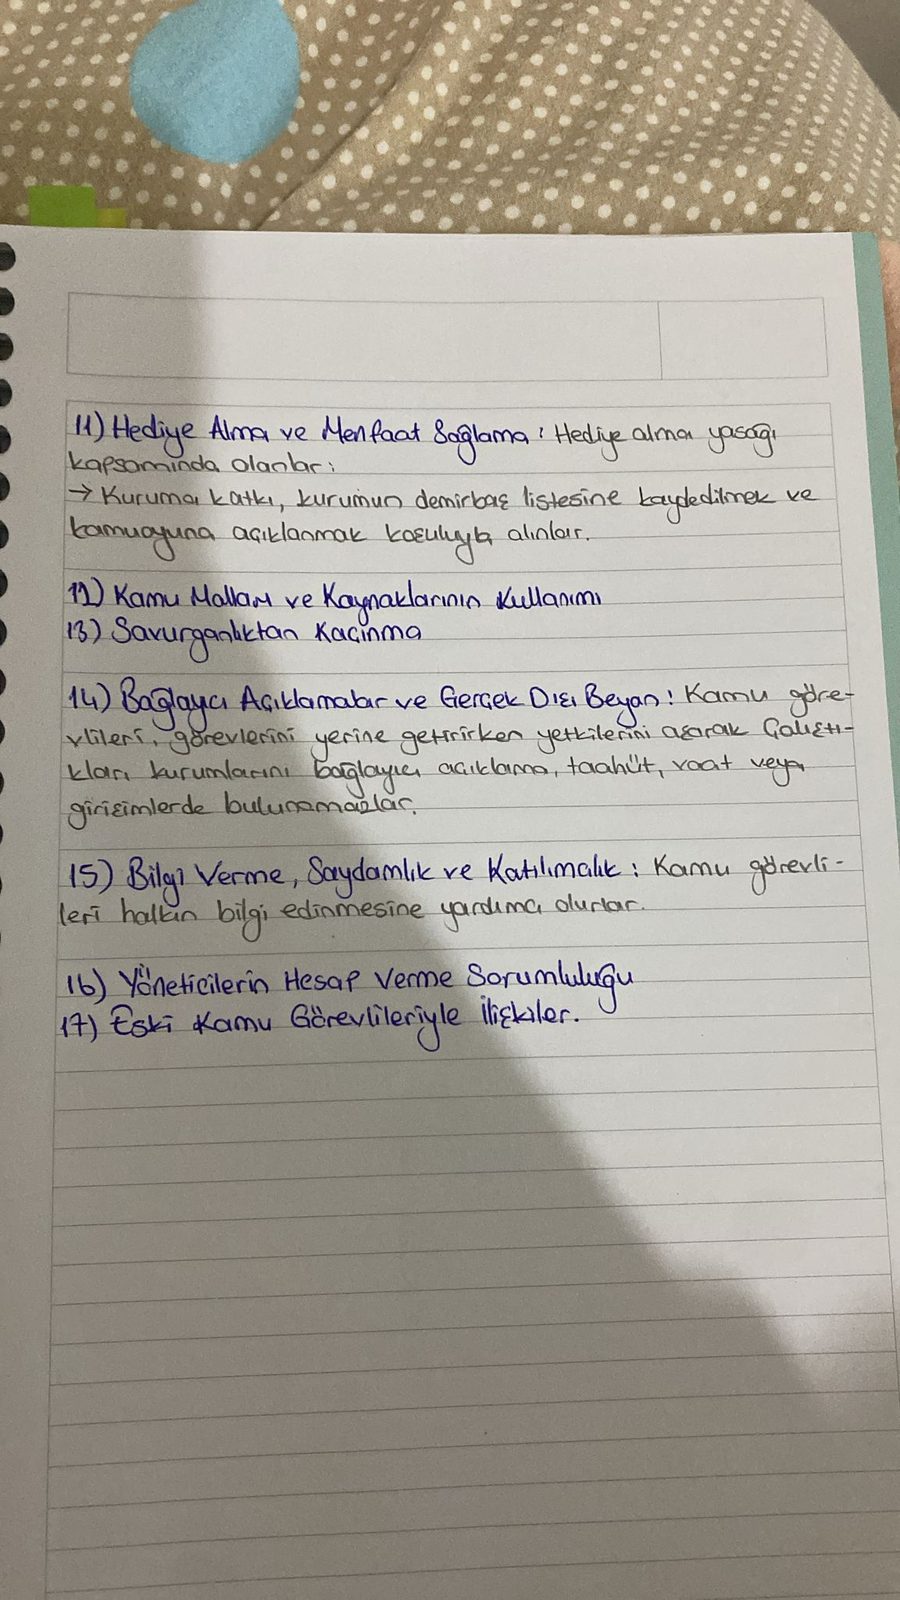 11) Hediye Alma ve Menfaat Sağlama: Hediye alma yasağı
kapsamında olanlar:
→ Kuruma katkı, kurumun demirbaş listesine kaydedilmek ve
kamuoyuna açıklanmak koşuluyla alınlar.
12) Kamu Malları ve Kaynaklarının Kullanımı
13) Savurganlıktan Kaçınma
14) Bağlayıcı Açıklamalar ve Gerçek Dışı Beyan: Kamu göre-
vlileri, görevlerini yerine getirirken yetkilerini aşarak Çalıştı-
kları kurumlarını bağlayıcı açıklama, taahüt, vaat veya
girişimlerde bulunamazlar.
15) Bilgi Verme, Saydamlık ve Katılımcılık: Kamu görevli-
leri halkın bilgi edinmesine yardımcı olurlar.
16) Yöneticilerin Hesap Verme Sorumluluğu
17) Eski Kamu Görevlileriyle İlişkiler.